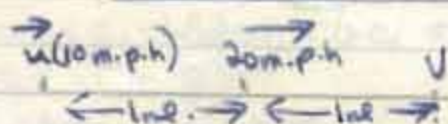 u(10 m.p.h) 20 m.p.h V
1 ml. 1 ml.